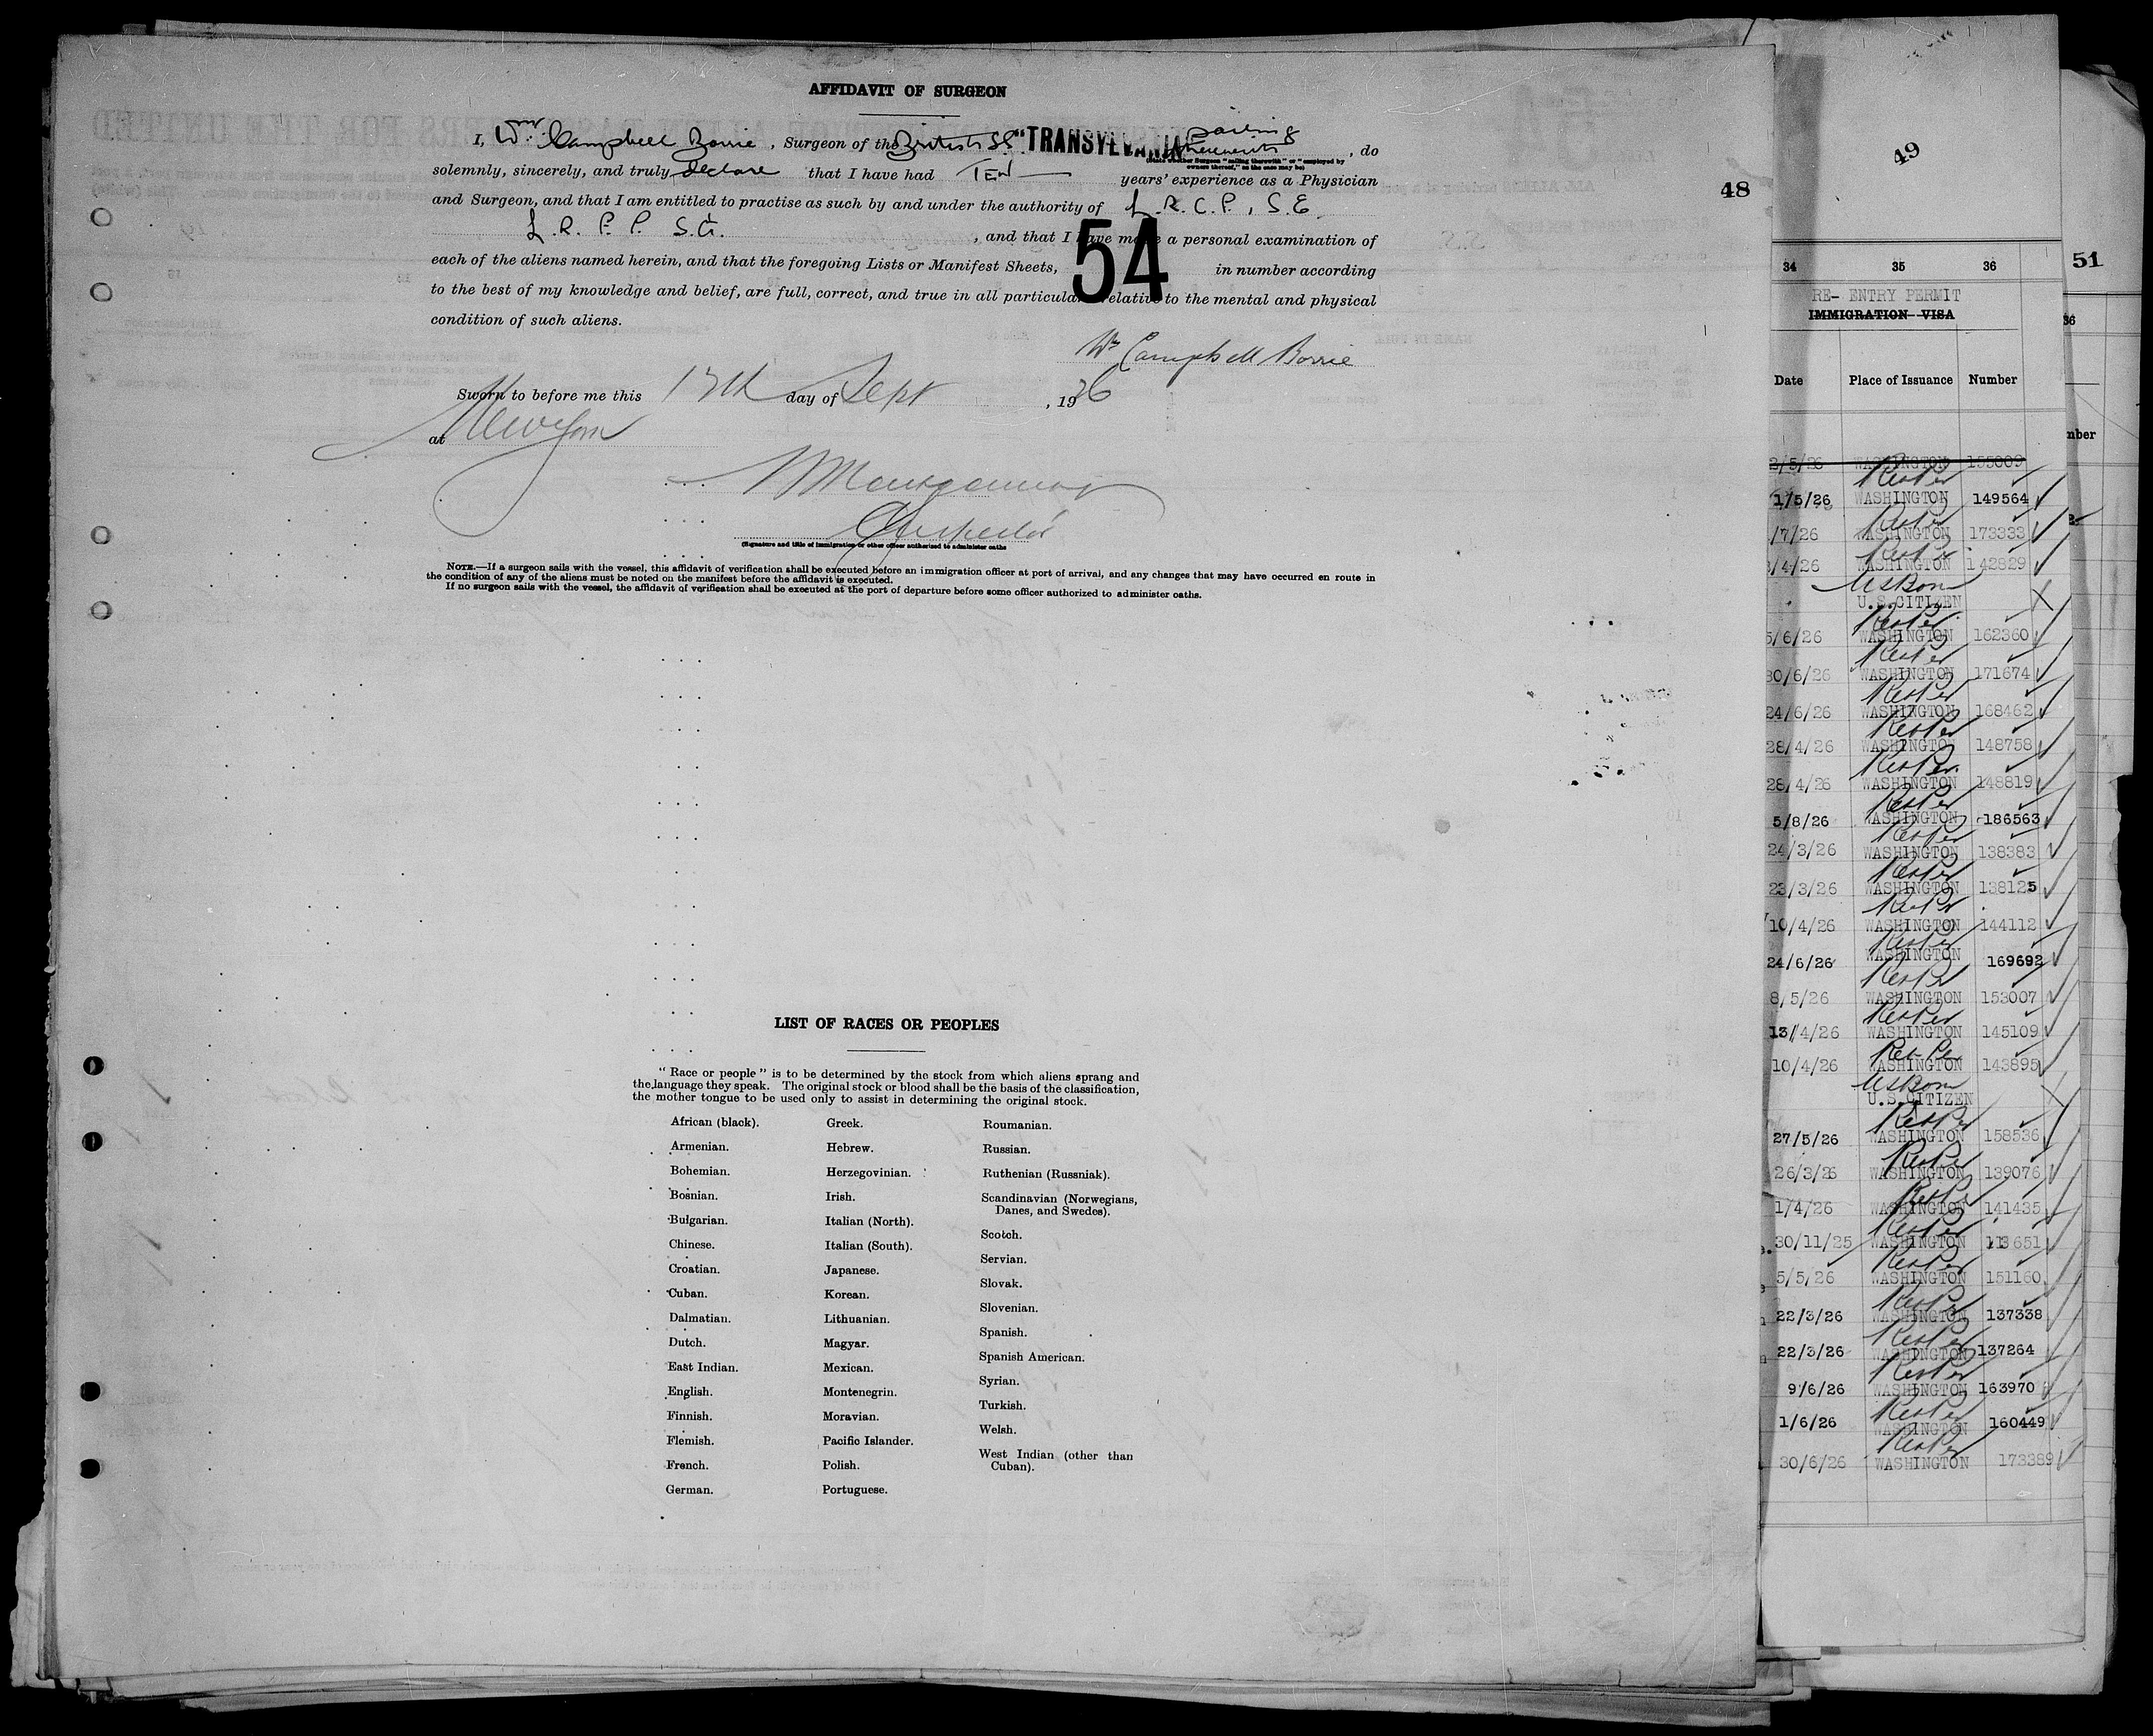 AFFIDAVIT OF SURGEON
I, Wm Campbell Borrie, Surgeon of the British SS. "TRANSYLVANIA" sailing therewith, do
(State whether Surgeon "sailing therewith" or "employed by owners thereof," as the case may be)
solemnly, sincerely, and truly declare that I have had TEN years' experience as a Physician
and Surgeon, and that I am entitled to practise as such by and under the authority of L.R.C.P., S.E.
L.R.F.P. S.G. , and that I have made a personal examination of
each of the aliens named herein, and that the foregoing Lists or Manifest Sheets, 54 in number according
to the best of my knowledge and belief, are full, correct, and true in all particulars relative to the mental and physical
condition of such aliens.
Wm Campbell Borrie
Sworn to before me this 12th day of Sept , 1926
at New York
Montgomery
Inspector
(Signature and title of immigration or other officer authorized to administer oaths
NOTE.—If a surgeon sails with the vessel, this affidavit of verification shall be executed before an immigration officer at port of arrival, and any changes that may have occurred en route in
the condition of any of the aliens must be noted on the manifest before the affidavit is executed.
If no surgeon sails with the vessel, the affidavit of verification shall be executed at the port of departure before some officer authorized to administer oaths.
LIST OF RACES OR PEOPLES
"Race or people" is to be determined by the stock from which aliens sprang and
the language they speak. The original stock or blood shall be the basis of the classification,
the mother tongue to be used only to assist in determining the original stock.
African (black).
Armenian.
Bohemian.
Bosnian.
Bulgarian.
Chinese.
Croatian.
Cuban.
Dalmatian.
Dutch.
East Indian.
English.
Finnish.
Flemish.
French.
German.
Greek.
Hebrew.
Herzegovinian.
Irish.
Italian (North).
Italian (South).
Japanese.
Korean.
Lithuanian.
Magyar.
Mexican.
Montenegrin.
Moravian.
Pacific Islander.
Polish.
Portuguese.
Roumanian.
Russian.
Ruthenian (Russniak).
Scandinavian (Norwegians,
Danes, and Swedes).
Scotch.
Servian.
Slovak.
Slovenian.
Spanish.
Spanish American.
Syrian.
Turkish.
Welsh.
West Indian (other than
Cuban).
48
49
34 35 36
RE-ENTRY PERMIT
IMMIGRATION VISA
Date Place of Issuance Number
2/5/26 WASHINGTON 155009
1/5/26 WASHINGTON 149564
/7/26 WASHINGTON 173333
/4/26 WASHINGTON 142829
US Born
U.S.CITIZEN
5/6/26 WASHINGTON 162360
30/6/26 WASHINGTON 171674
24/6/26 WASHINGTON 168462
28/4/26 WASHINGTON 148758
28/4/26 WASHINGTON 148819
5/8/26 WASHINGTON 186563
24/3/26 WASHINGTON 138383
23/3/26 WASHINGTON 138125
10/4/26 WASHINGTON 144112
24/6/26 WASHINGTON 169692
8/5/26 WASHINGTON 153007
13/4/26 WASHINGTON 145109
10/4/26 WASHINGTON 143895
US Born
U.S.CITIZEN
27/5/26 WASHINGTON 158536
26/3/26 WASHINGTON 139076
1/4/26 WASHINGTON 141435
30/11/25 WASHINGTON 113651
5/5/26 WASHINGTON 151160
22/3/26 WASHINGTON 137338
22/3/26 WASHINGTON 137264
9/6/26 WASHINGTON 163970
1/6/26 WASHINGTON 160449
30/6/26 WASHINGTON 173389
51
36
mber